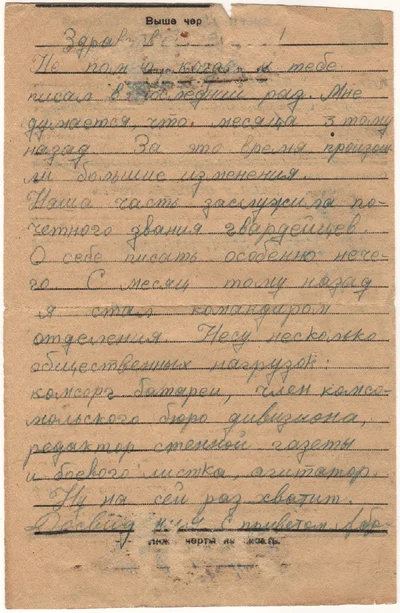 Выше чер
Здравс
Не помню когда я тебе
писал в последний раз. Мне
думается, что месяца 3 тому
назад За это время произош-
ли большие изменения.
Наша часть заслужила по-
четного звания гвардейцев.
О себе писать особенно нече-
го. С месяц тому назад
я стал командиром
отделения. Несу несколько
общественных нагрузок:
комсорг батареи, член комсо-
мольского бюро дивизиона,
редактор стенной газеты
и боевого листка, агитатор.
Ну на сей раз хватит.
Досвид с приветом
Ниже черты не писать.